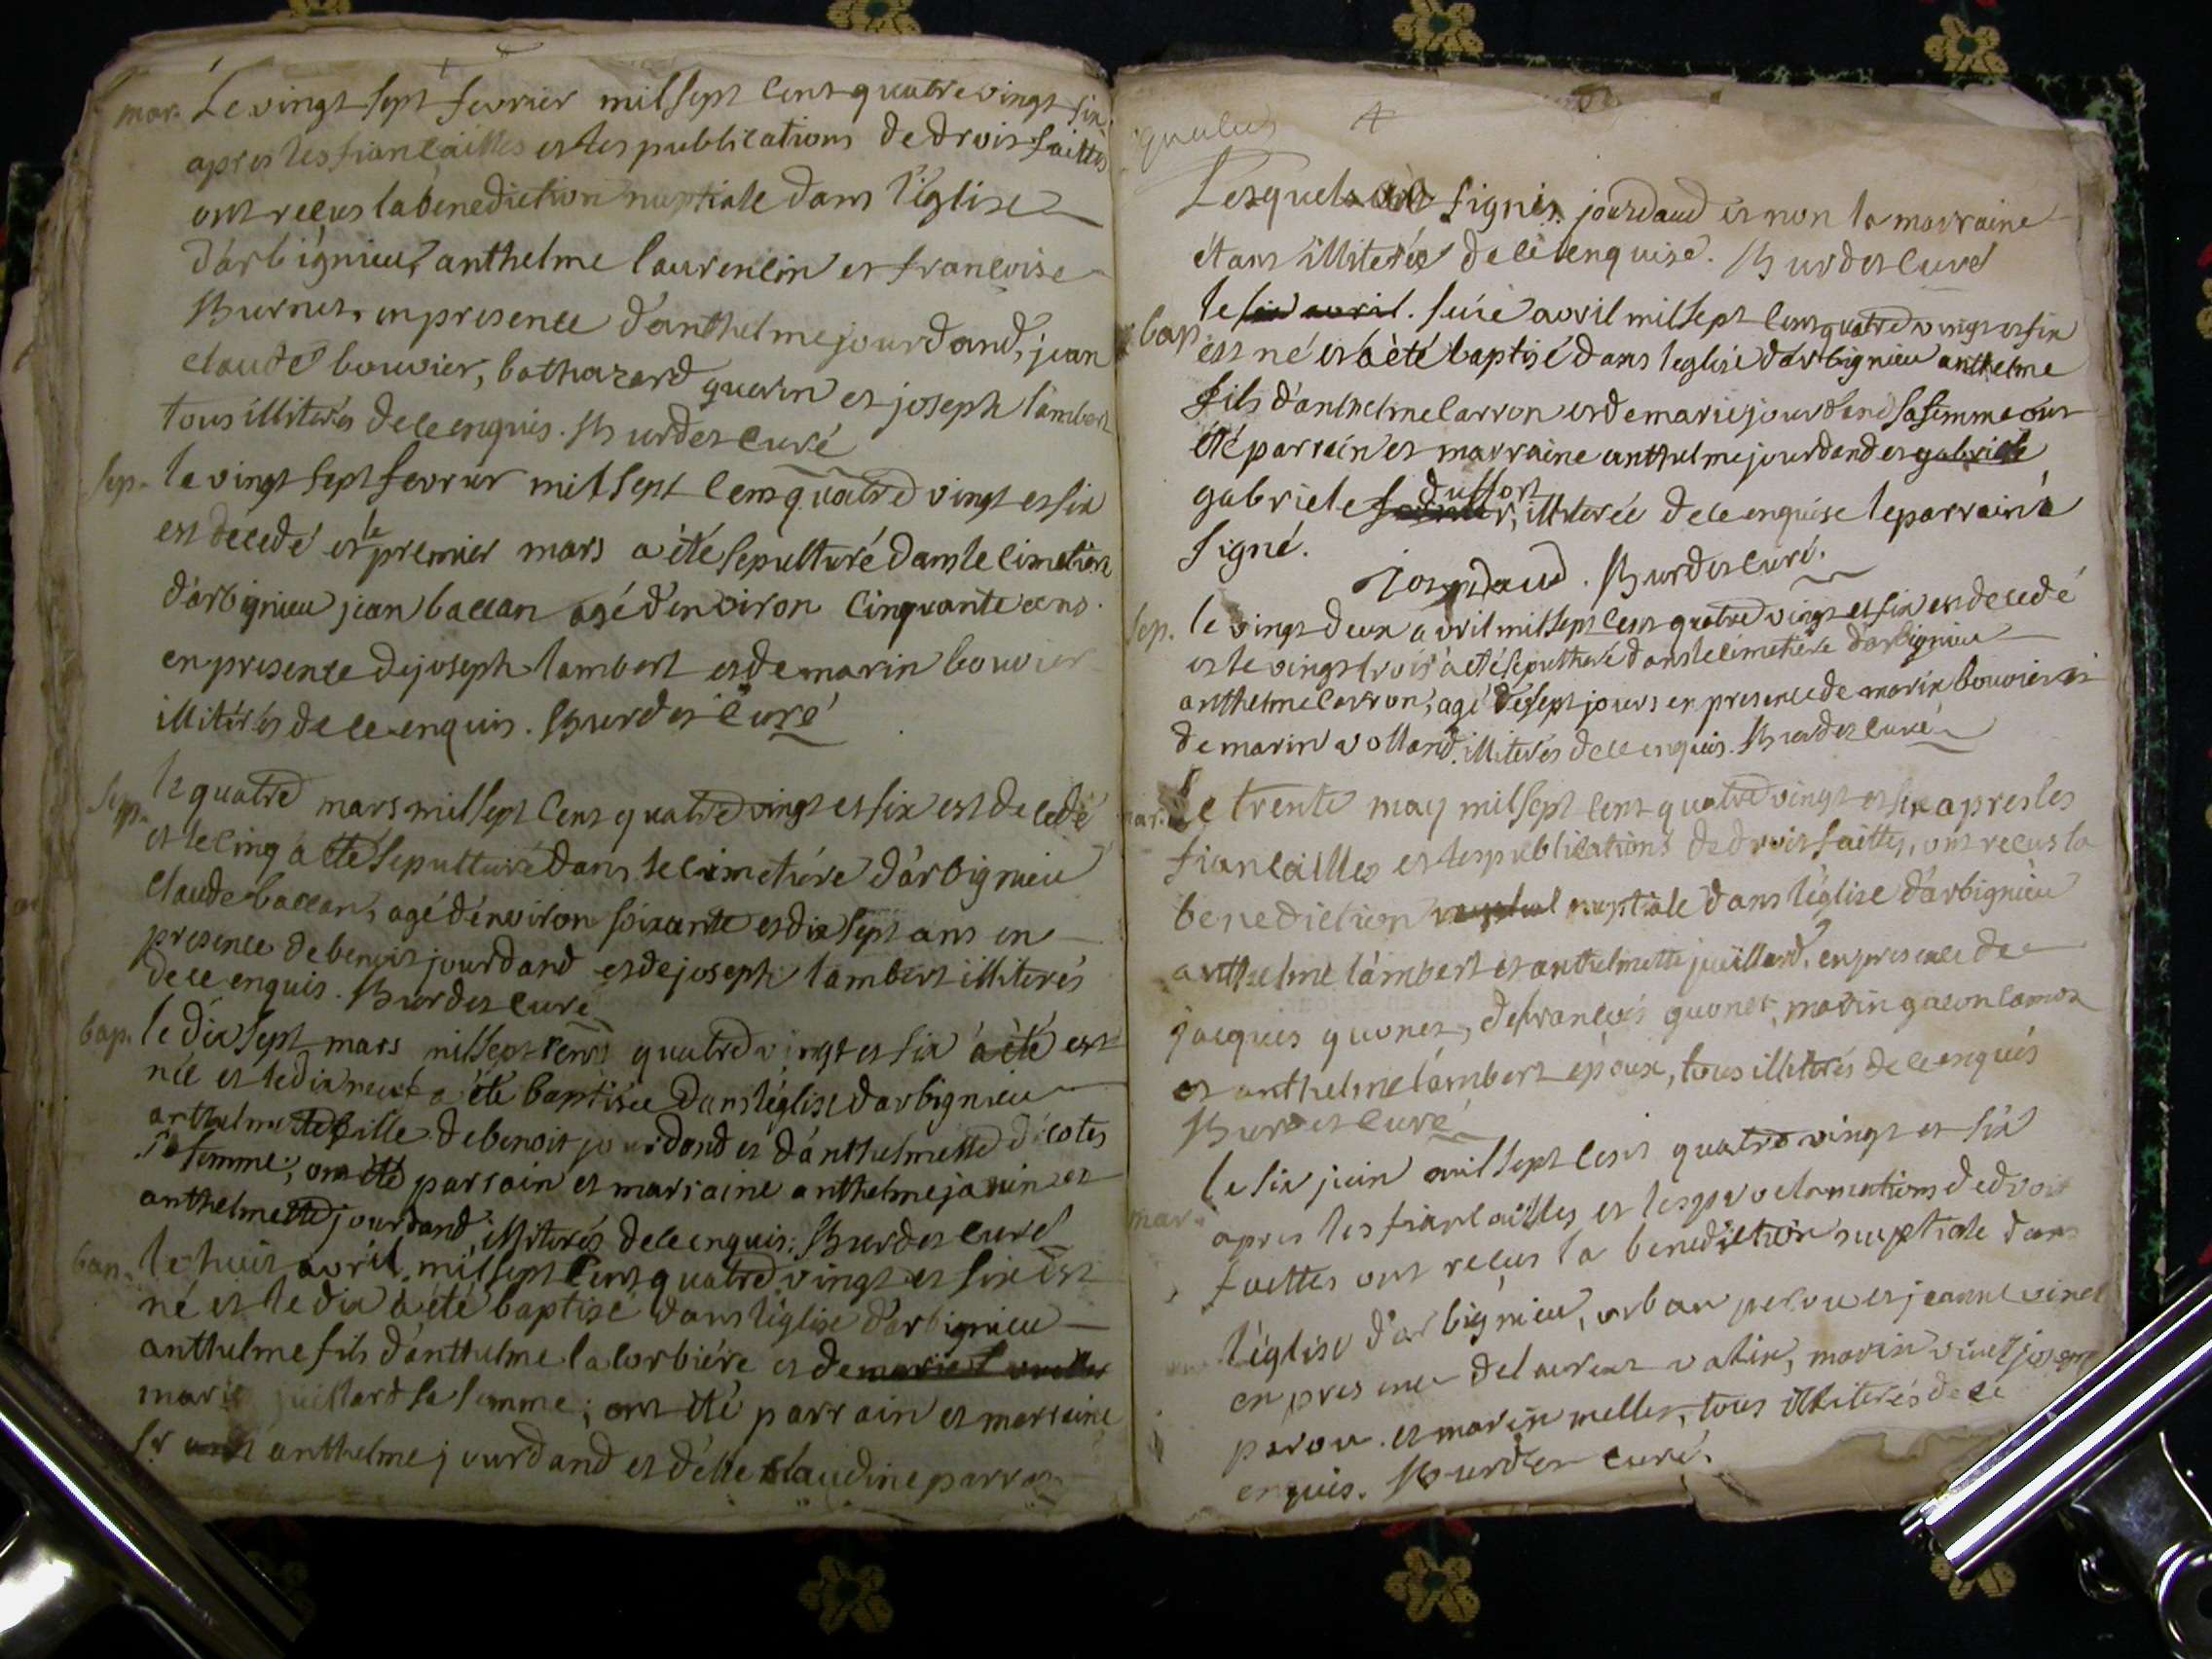 mar. Le vingt sept fevrier mil sept cent quatre vingt six
apres les fiancailles et les publications de droit faittes
ont reçus la benediction nuptiale dans l'église
d'arbignieu, anthelme laurencin et francoise
Burnet, en presence d'anthelme jourdand, jean
claude bouvier, bathazard guerin et joseph lambert
tous illiterés de ce enquis. Burdet curé
sep. le vingt sept fevrier mil sept cent quatre vingt et six
est decedé et le premier mars a été sepulturé dans le cimetiere
d'arbignieu jean ballan agé d'environ cinquante ans.
en presence de joseph lambert et de marin bouvier
illiterés de ce enquis. Burdet curé
sep. le quatre mars mil sept cent quatre vingt et six est decedé
et le cinq a été sepulturé dans le cimetiére d'arbignieu
claude ballan, agé d'environ soixante et dix sept ans en
presence de benoit jourdand et de joseph lambert illiterés
de ce enquis. Burdet curé
bap. le dix sept mars mil sept cent quatre vingt et six a été est
née et le dix neuf a été baptisée dans l'église d'arbignieu
anthelmette fille de benoit jourdand et d'anthelmette dicotes
sa femme; ont été parrain et marraine anthelme janin et
anthelmette jourdand, illiterés de ce enquis. Burdet curé
bap. le huit avril mil sept cent quatre vingt et six est
né et le dix a été baptisé dans l'église d'arbignieu
anthelme fils d'anthelme lacorbiére et de marie
marie juillard sa femme; ont été parrain et marraine
sr anthelme jourdand et delle claudine parra
Lesquels ont signés. jourdand et non la marraine
étant illiterée de ce enquise. Burdet curé
bap. le six avril. seize avril mil sept cent quatre vingt et six
est né et a été baptisé dans l'eglise d'arbignieu anthelme
fils d'anthelme carron et de marie jourdand sa femme ont
été parrain et marraine anthelme jourdand et gabriele
gabriele duffort, illiterée de ce enquise le parrain a
signé.
Jourdaud. Burdet curé.
sep. le vingt deux avril mil sept cent quatre vingt et six est decedé
et le vingt trois a été sepulturé dans le cimetiére d'arbignieu
anthelme carron, agé de sept jours en presence de marin bouvier et
de marin volland. illiterés de ce enquis. Burdet curé
mar. Le trente may mil sept cent quatre vingt et six apres les
fiancailles et les publications de droit faittes, ont recus la
benediction nuptial nuptiale dans l'église d'arbignieu
anthelme lambert et anthelmette juillard, en presence de
jacques guonet, de francois guonet, marin gacon
et anthelme lambert epoux, tous illiterés de ce enquis
Burdet curé
mar. le six juin mil sept cent quatre vingt et six
apres les fiancailles et les proclamations de droit
faittes ont reçus la benediction nuptiale dans
l'église d'arbignieu, urban perou et jeanne vinet
en presence de laurent vatin, marin vinet joseph
perou et marin mellet, tous illiterés de ce
enquis. Burdet curé.